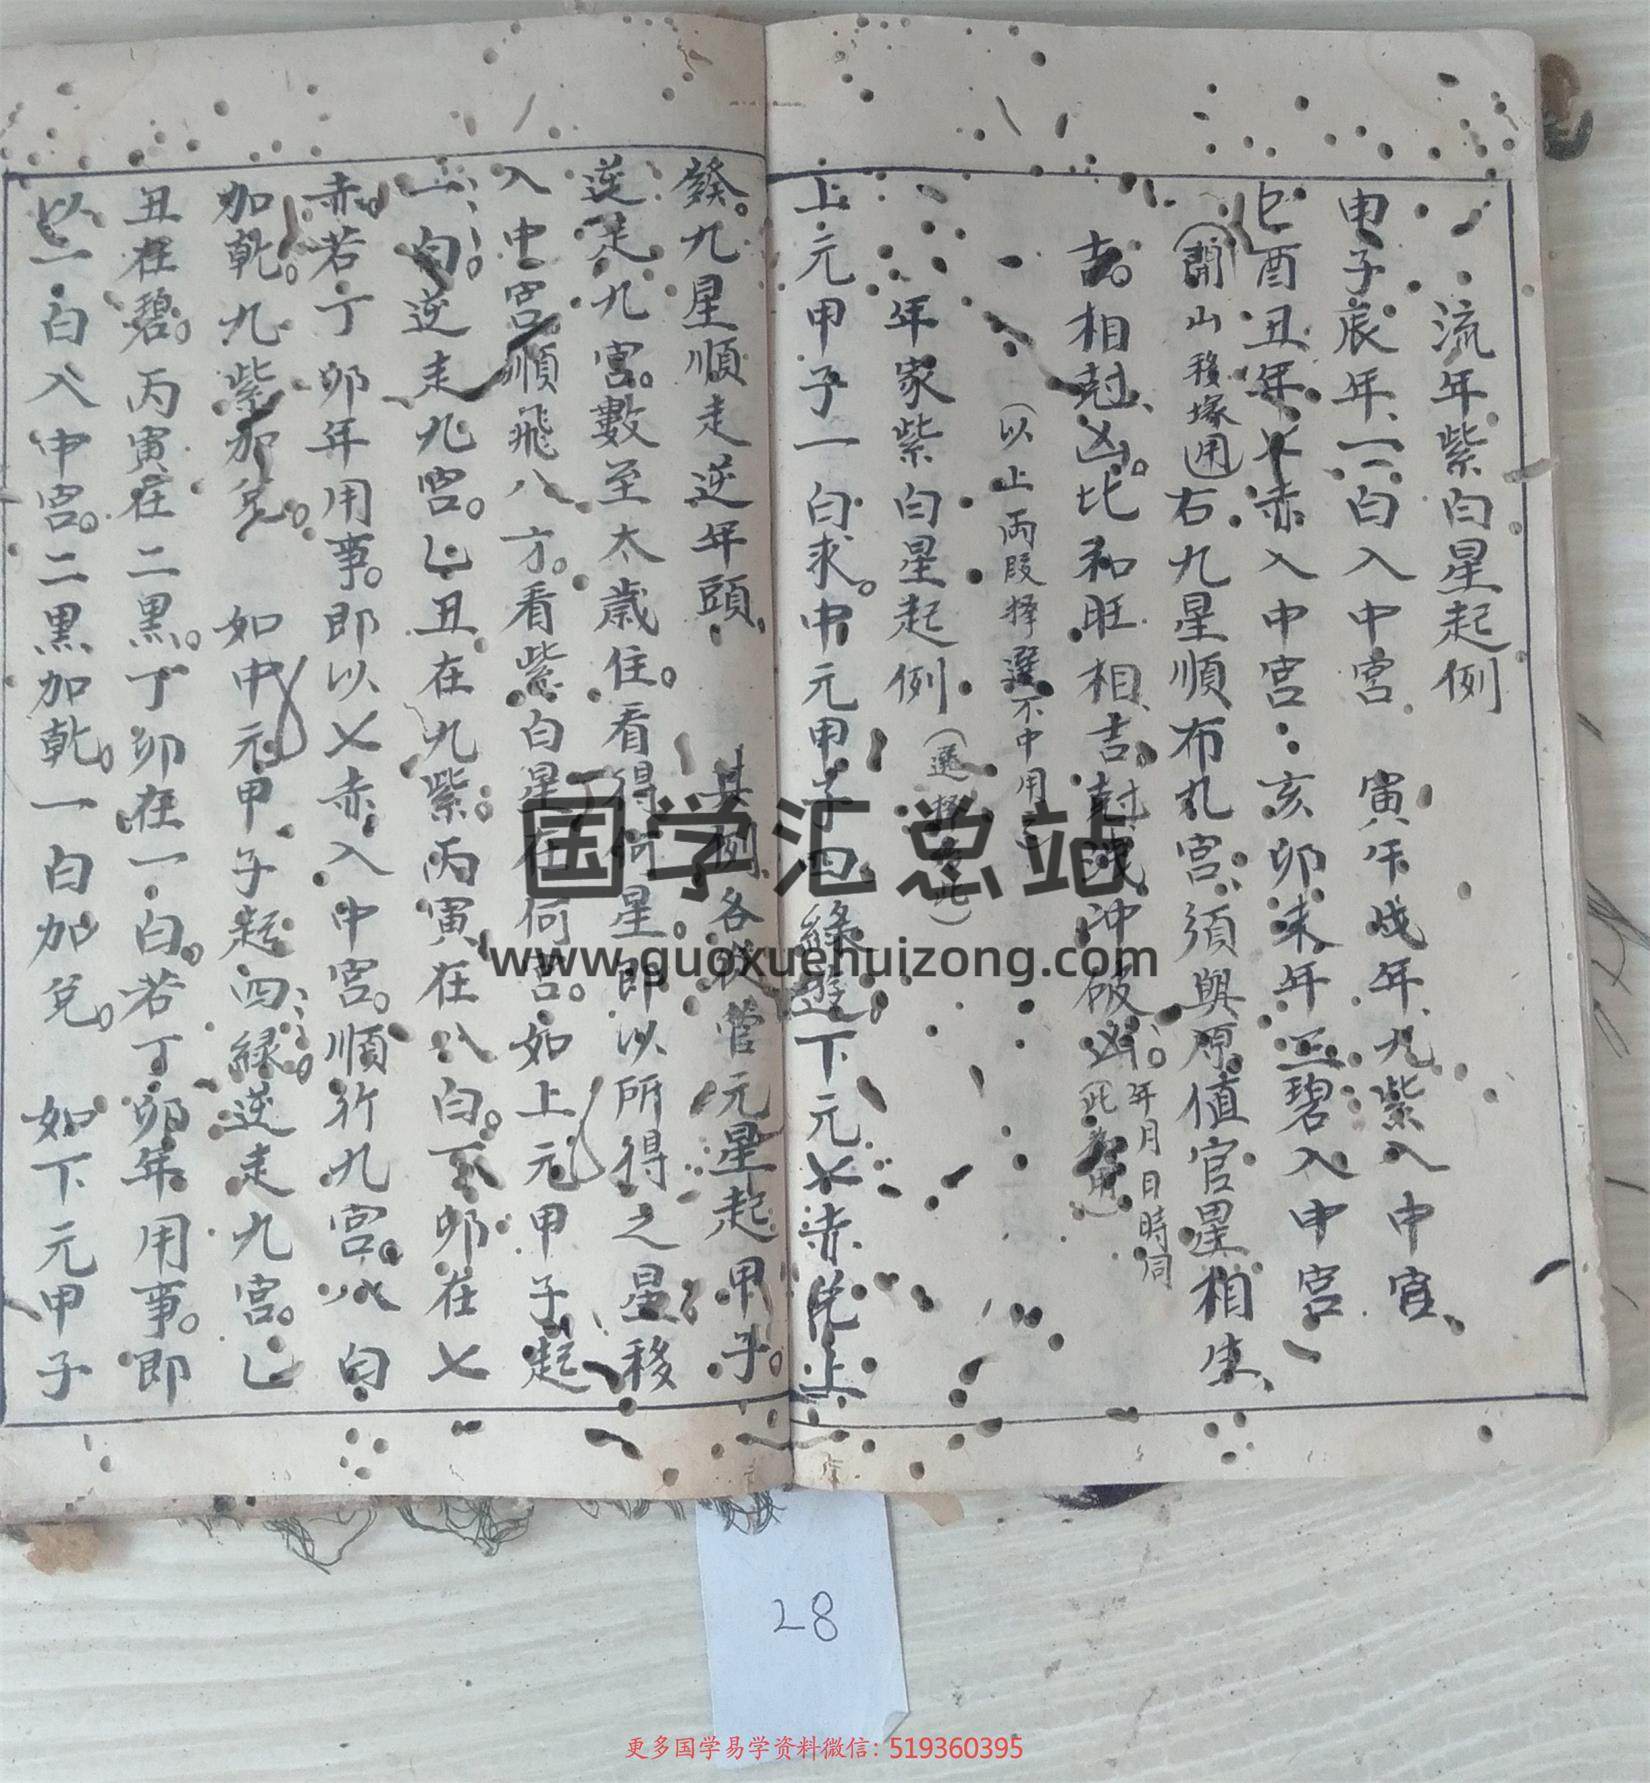 流年紫白星起例
申子辰年、一白入中宮　寅午戌年九紫入中宮、
巳酉丑年七赤入中宮　亥卯未年三碧入中宮
(開山移塚用)右九星順布九宮、須與原值官星相生、
吉。相尅凶。比和旺相吉尅洩冲破凶。年月日時同
(以上兩段擇選不中用)
年家紫白星起例(選擇
上元甲子一白求。中元甲子四綠遊。下元七赤兌上
發。九星順走逆年頭、　其例各從管元星起甲子。
逆走九宮。數至太歲住。看得何星。即以所得之星移
入中宮順飛八方。看紫白星在何宮。如上元甲子起
一白。逆走九宮。乙丑在九紫。丙寅在八白。丁卯在七
赤。若丁卯年用事。即以七赤入中宮。順行九宮。八白
加乾。九紫加兌。　如中元甲子起四綠。逆走九宮。乙
丑在碧。丙寅在二黑。丁卯在一白。若丁卯年用事。即
以一白入中宮。二黑加乾。一白加兌。　如下元甲子
国学汇总站
www.guoxuehuizong.com
28
更多国学易学资料微信：519360395